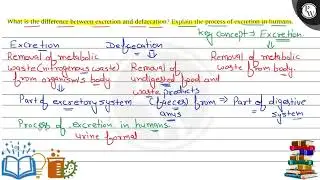 What is the difference between excretion and defaecation? Explain the process of excretion in humans.
key concept → Excretion
Excretion Defaecation
Removal of metabolic Removal of metabolic
waste (nitrogenous waste) Removal of waste from body.
from organisms body undigested food and
waste products
Part of excretory system (faeces) from ⇒ Part of digestive
anus system
Process of excretion in humans
urine format